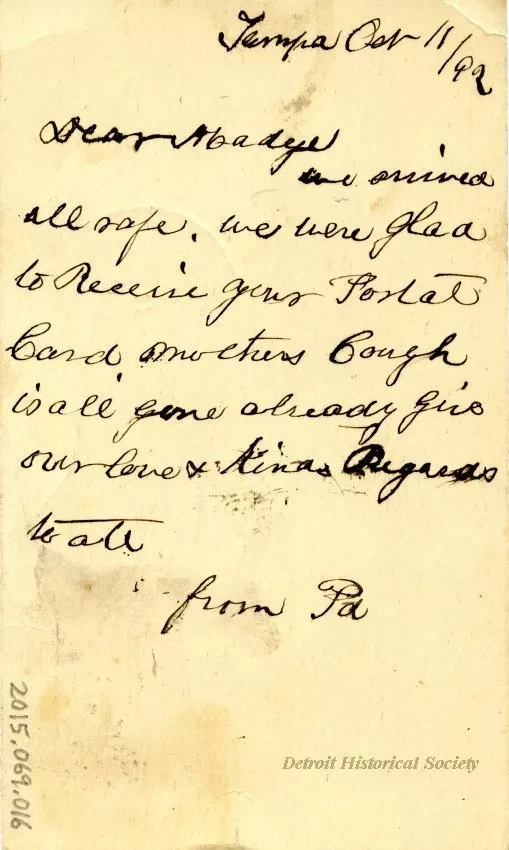 Tampa Oct 11/92
Dear Madge
we arrived
all safe. we were glad
to Receive your Postal
Card mothers Cough
is all gone already give
our love & Kind Regards
to all
from Pa
Detroit Historical Society
2015.069.016